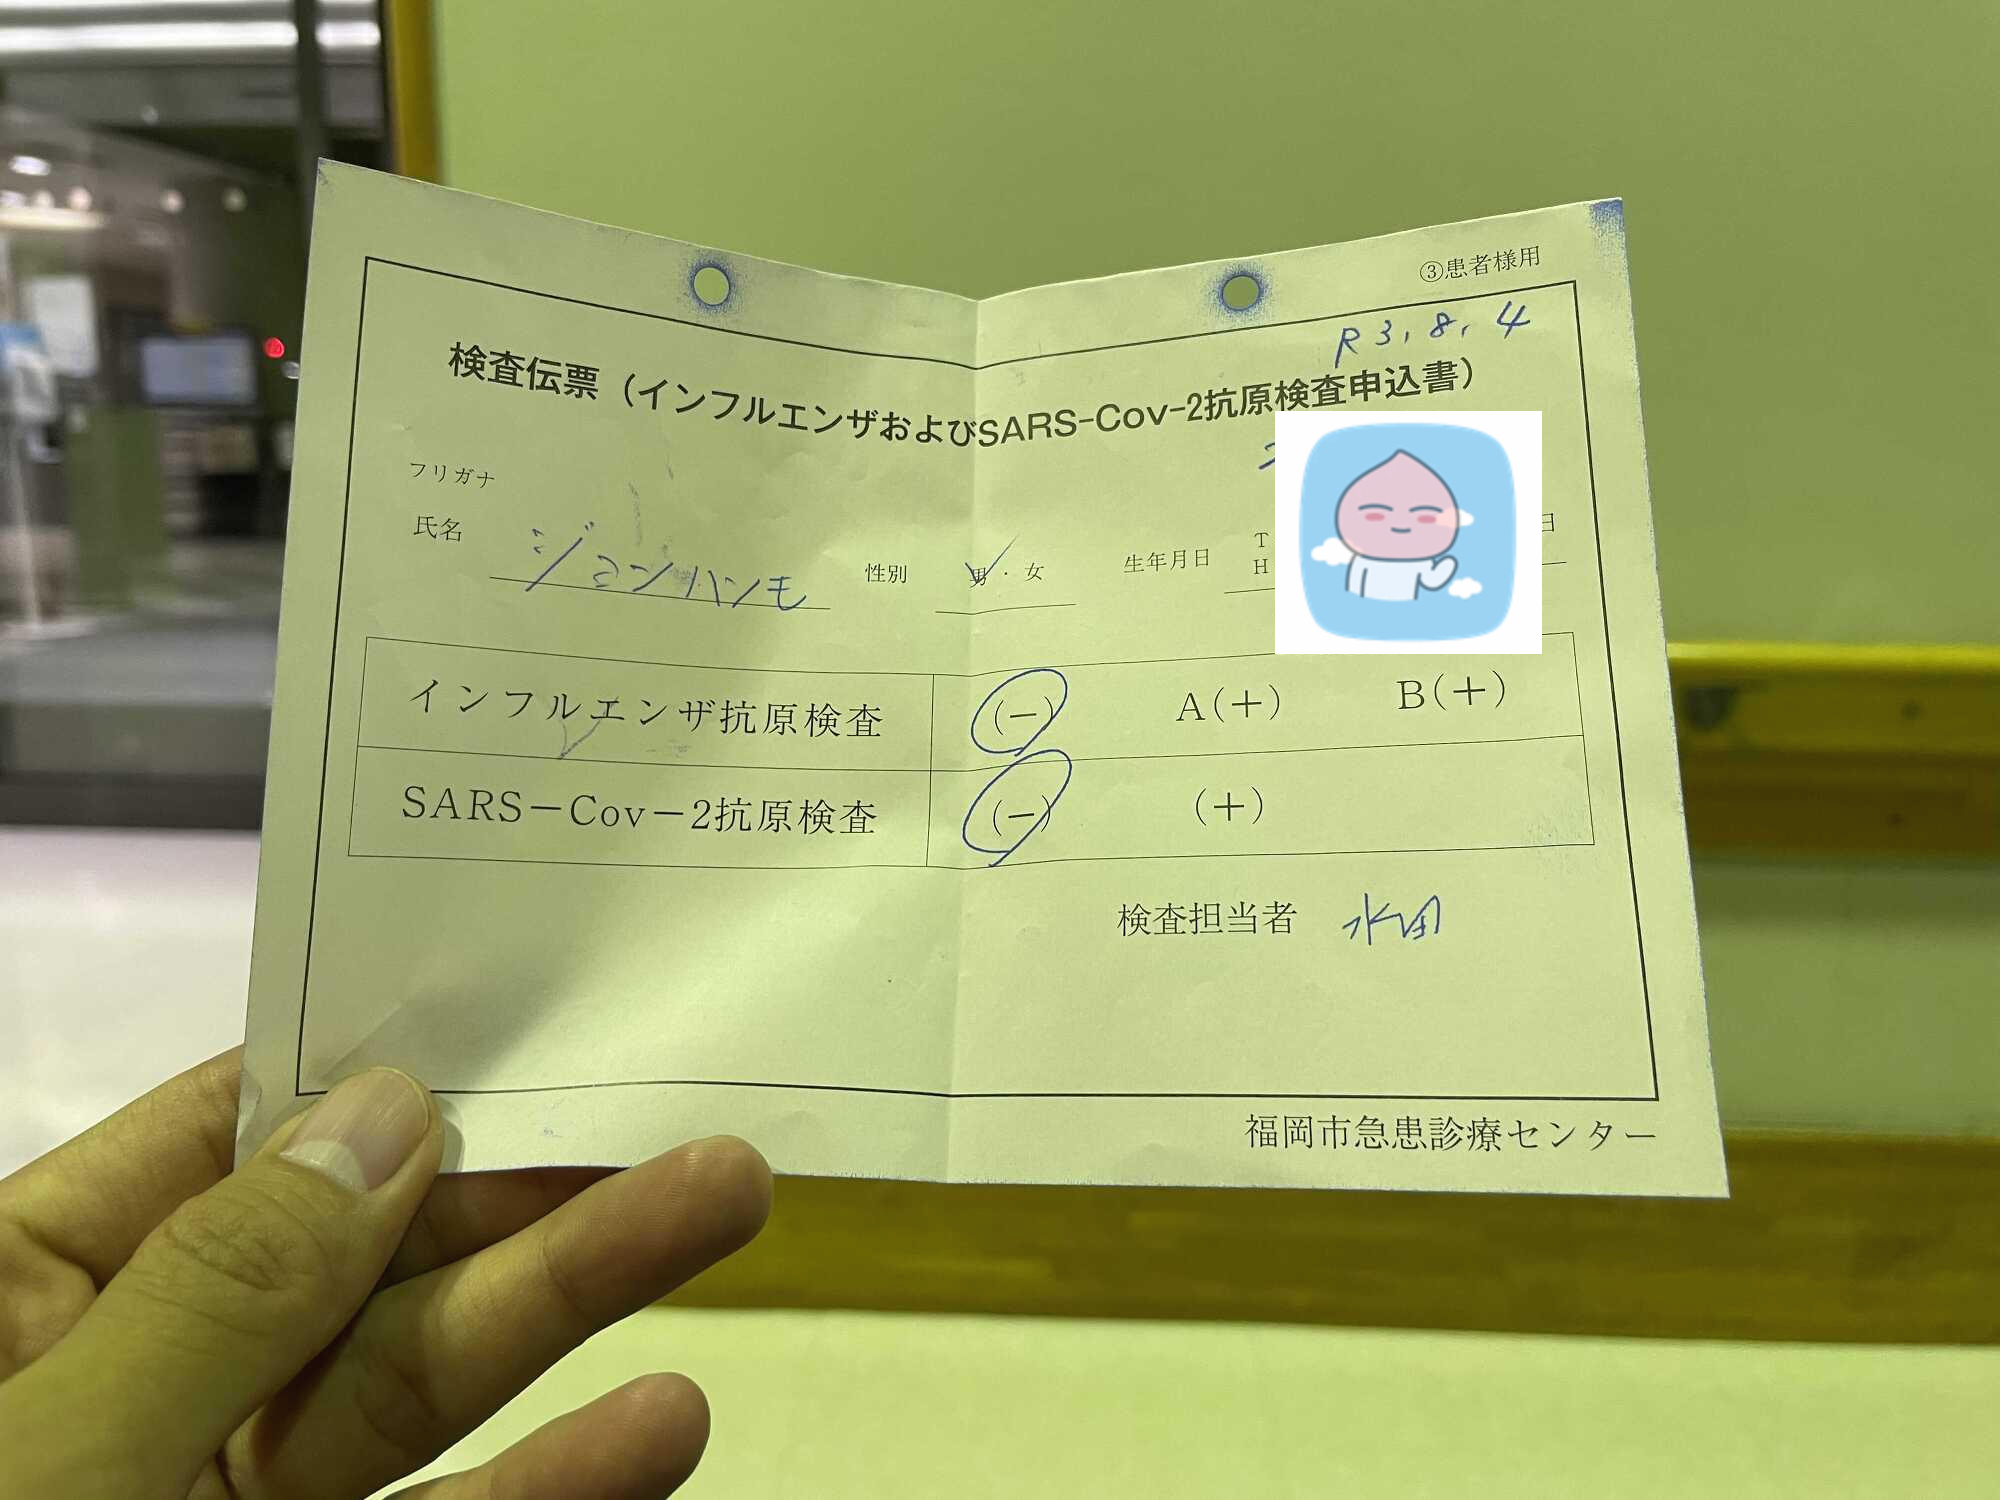 ③患者様用
R 3. 8. 4
検査伝票（インフルエンザおよびSARS-Cov-2抗原検査申込書）
フリガナ
氏名 ジョンハンモ 性別 男・女 生年月日 T H 日
インフルエンザ抗原検査 (−) A(+) B(+)
SARS−Cov−2抗原検査 (−) (+)
検査担当者 水田
福岡市急患診療センター